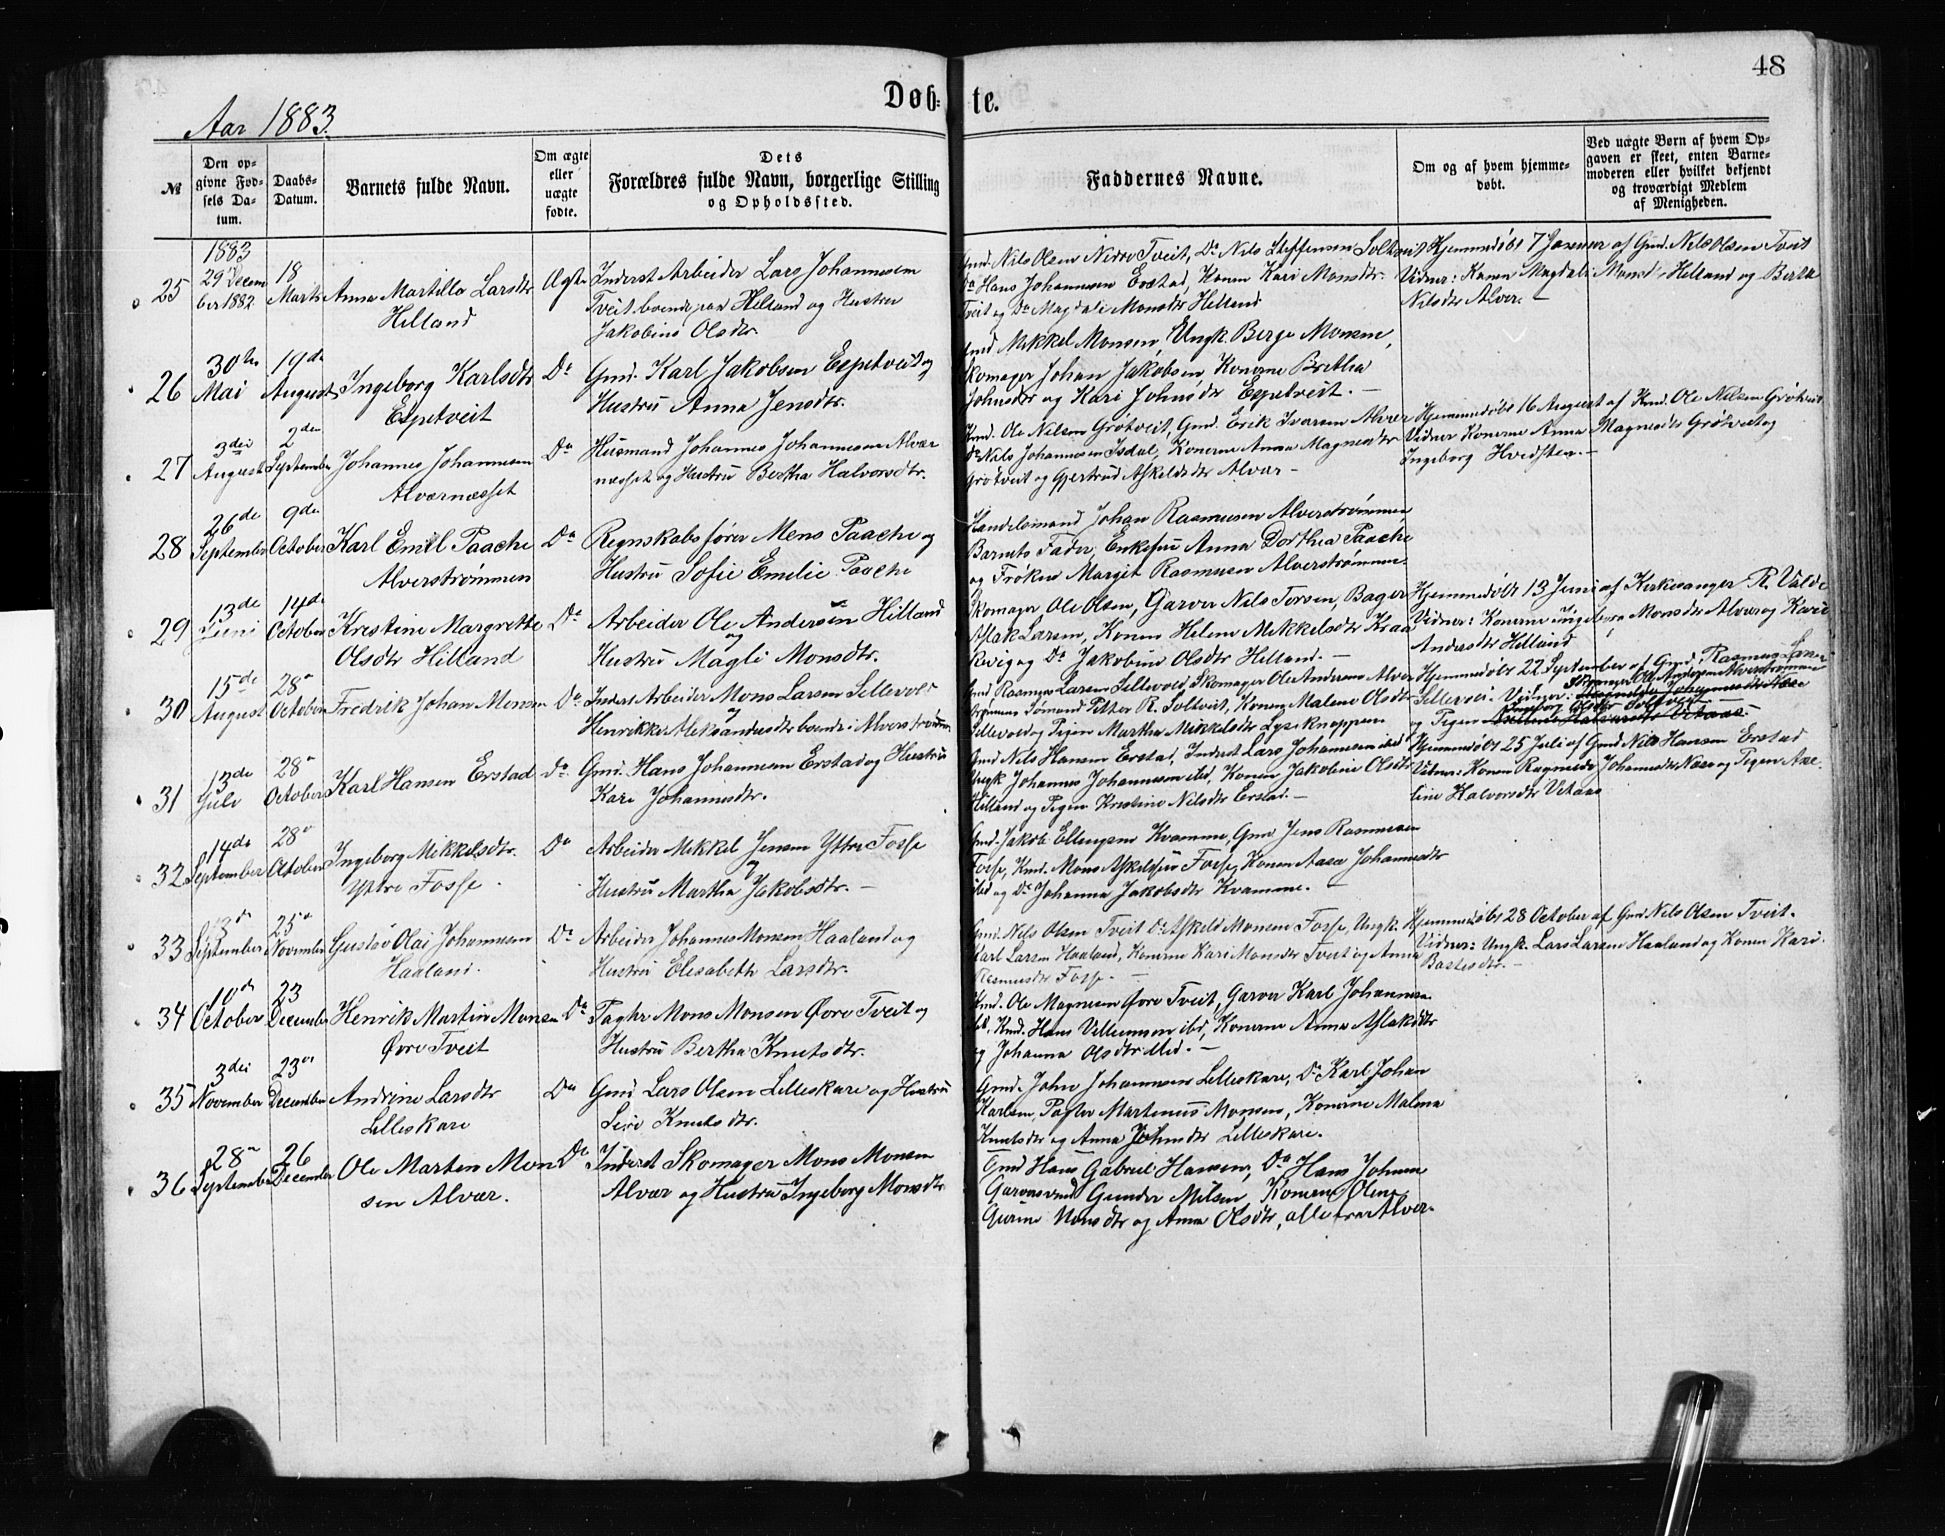 48
Døb-te.
Aar 1883.
№
Den opgivne Fødsels Datum.
Daabs-Datum.
Barnets fulde Navn.
Om ægte eller uægte fødte.
Dets Forældres fulde Navn, borgerlige Stilling og Opholdssted.
Faddernes Navne.
Om og af hvem hjemmedøbt.
Ved uægte Børn af hvem Opgaven er skeet, enten Barnemoderen eller hvilket bekjendt og troværdigt Medlem af Menigheden.
1883
25
29 Decem
ber 1882
18
Marts
Anna Martilla Larsdtr
Hilland
Ægte
Inderst Arbeider Lars Johannesen
Tveit boende paa Hilland og Hustru
Jakobine Olsdtr.
Gmd. Nils Olsen Nedre Tveit, Do Nils Steffensen Soltveit
Do Hans Johannesen Erstad, Konen Kari Monsdtr.
Tveit og Do Magdali Monsdtr Hilland
Hjemmedøbt 7 Januar af Gmd. Nils Olsen Tveit
Vidner: Karen Magdali Monsd. Hilland og Bertha
Nilsdtr Alver. –
26
30te
Mai
19de
August
Ingeborg Karlsdtr
Espetveit
Do
Gmd. Karl Jakobsen Espetveit og
Hustru Anna Jensdtr.
Gmd Mikkel Monsen, Ungk. Berge Monsen,
Skomager Johan Jakobsen, Konerne Brethe
Johnsdtr og Kari Johnsdtr Espetveit. –
27
3die
August
2den
September
Johannes Johannesen
Alvernæsset
Do
Husmand Johannes Johannesen Alver
næsset og Hustru Bertha Halvorsdtr.
Kmd. Ole Nilsen Grøtveit, Gmd. Erik Ivarsen Alver
Do Nils Johannesen Isdal, Konerne Anna Magnesdtr
Grøtveit og Gjertrud Askeldsdtr Alver –
Hjemmedøbt 16 August af Kmd. Ole Nilsen Grøtveit
Vidner Konerne Anna Magnesdtr Grøtveit og
Ingeborg Hvidsten. –
28
26de
September
9de
October
Karl Emil Paache
Alverstrømmen
Do
Regnskabsfører Mens Paache og
Hustru Sofie Emelie Paache
Handelsmand Johan Rasmusen Alverstrømmen
Barnets Fader, Enkefru Anna Dorthea Paache
og Frøken Margit Rasmusen Alverstrømmen.
29
13de
Juni
14de
October
Kristine Margrethe
Olsdtr Hilland
Do
Arbeider Ole Andersen Hilland
og
Hustru Magli Monsdtr.
Skomager Ole Olsen, Garver Nils Torsen, Bager
Aslak Larsen, Konen Helene Mikkelsdtr Kraa
kevig og Do Jakobine Olsdtr Hilland. –
Hjemmedøbt 13 Juni af Kirkesanger R. Valde
Vidner: Konerne Ingeborg Monsdtr Alver og Kari
Andersdtr Hilland
30
15de
August
28
October
Fredrik Johan Monsen
Do
Inderst Arbeider Mons Larsen Sellevold
og
Henrikke Aleksandersdtr boende i Alverstrømmen
Gmd Rasmus Larsen Sellevold, Skomager Ole Andersen Alver
strømmen Sømand Petter R. Soltveit, Konen Malene Olsdtr
Sellevold og Pigen Martha Mikkelsdtr Lyseknappen
Hjemmedøbt 22 September af Gmd. Rasmus Larsen
Sellevold. Vidner: Skomager Ole Andersen Alverstrømmen
og Pigen Ingeborg Olsdtr Soltveit
31
13de
Juli
28
October
Karl Hansen Erstad
Do
Gmd. Hans Johannesen Erstad og Hustru
Kari Johannesdtr.
Gmd Nils Hansen Erstad, Inderst Lars Johannesen ibid
Ungk Johannes Johannesen ibid, Konen Jakobine Olsdtr
Hilland og Pigen Kristine Nilsdtr Erstad. –
Hjemmedøbt 25 Juli af Gmd Nils Hansen Erstad
Vidner: Konen Ragnilde Johannesdtr Næss og Pigen Axe
line Halvorsdtr Vetaas
32
14de
September
28
October
Ingeborg Mikkelsdtr.
Ytre Fosse
Do
Arbeider Mikkel Jensen Yttre Fosse
og
Hustru Martha Jakobsdtr. –
Gmd. Jakob Ellingsen Kvamme, Gmd Jens Rasmusen
Fosse, Kmd. Mons Askeldsen Fosse, Konen Aase Johannesdtr
ibid og Do Johanna Jakobsdtr Kvamme. –
33
September
25
November
Gustav Olai Johannesen
Haaland.
Do
Arbeider Johannes Monsen Haaland og
Hustru Elesabeth Larsdtr.
Gmd. Nils Olsen Tveit Do Askeld Monsen Fosse, Ungk.
Karl Larsen Haaland, Konerne Kari Monsdtr Tveit og Anna
Rasmusdtr Fosse. –
Hjemmedøbt 28 October af Gmd Nils Olsen Tveit.
Vidner: Ungk. Lars Larsen Haaland og Konen Kari
Bastesdtr. –
34
10de
October
23
December
Henrik Martin Monsen
Øvre Tveit
Do
Pagter Mons Monsen Øvre Tveit og
Hustru Bertha Knutsdtr.
Kmd. Ole Magnesen Øvre Tveit, Garver Karl Johannesen
ibd. Kmd. Hans Villumsen ibd, Konerne Anna Aslaksdtr
og Johanna Olsdtr ibid. –
35
3die
November
23
December
Andrine Larsdtr
Lilleskare
Do
Gmd Lars Olsen Lilleskare og Hustru
Sire Knutsdtr.
Gmd. John Johannesen Lilleskare, Do Karl Johan
Karlsen, Pagter Martenus Monsen, Konerne Malena
Knutsdtr og Anna Johnsdtr Lilleskare.
36
28
September
26
December
Ole Marten Mon
sen Alvær.
Do
Inderst Skomager Mons Monsen
Alvær og Hustru Ingeborg Monsdtr
Gmd Hans Gabriel Hansen, Do Hans Johnsen
Garversvend Gunder Nilsen, Konerne Oline
Gurine Monsdtr og Anna Olsdtr, alle paa Alver.